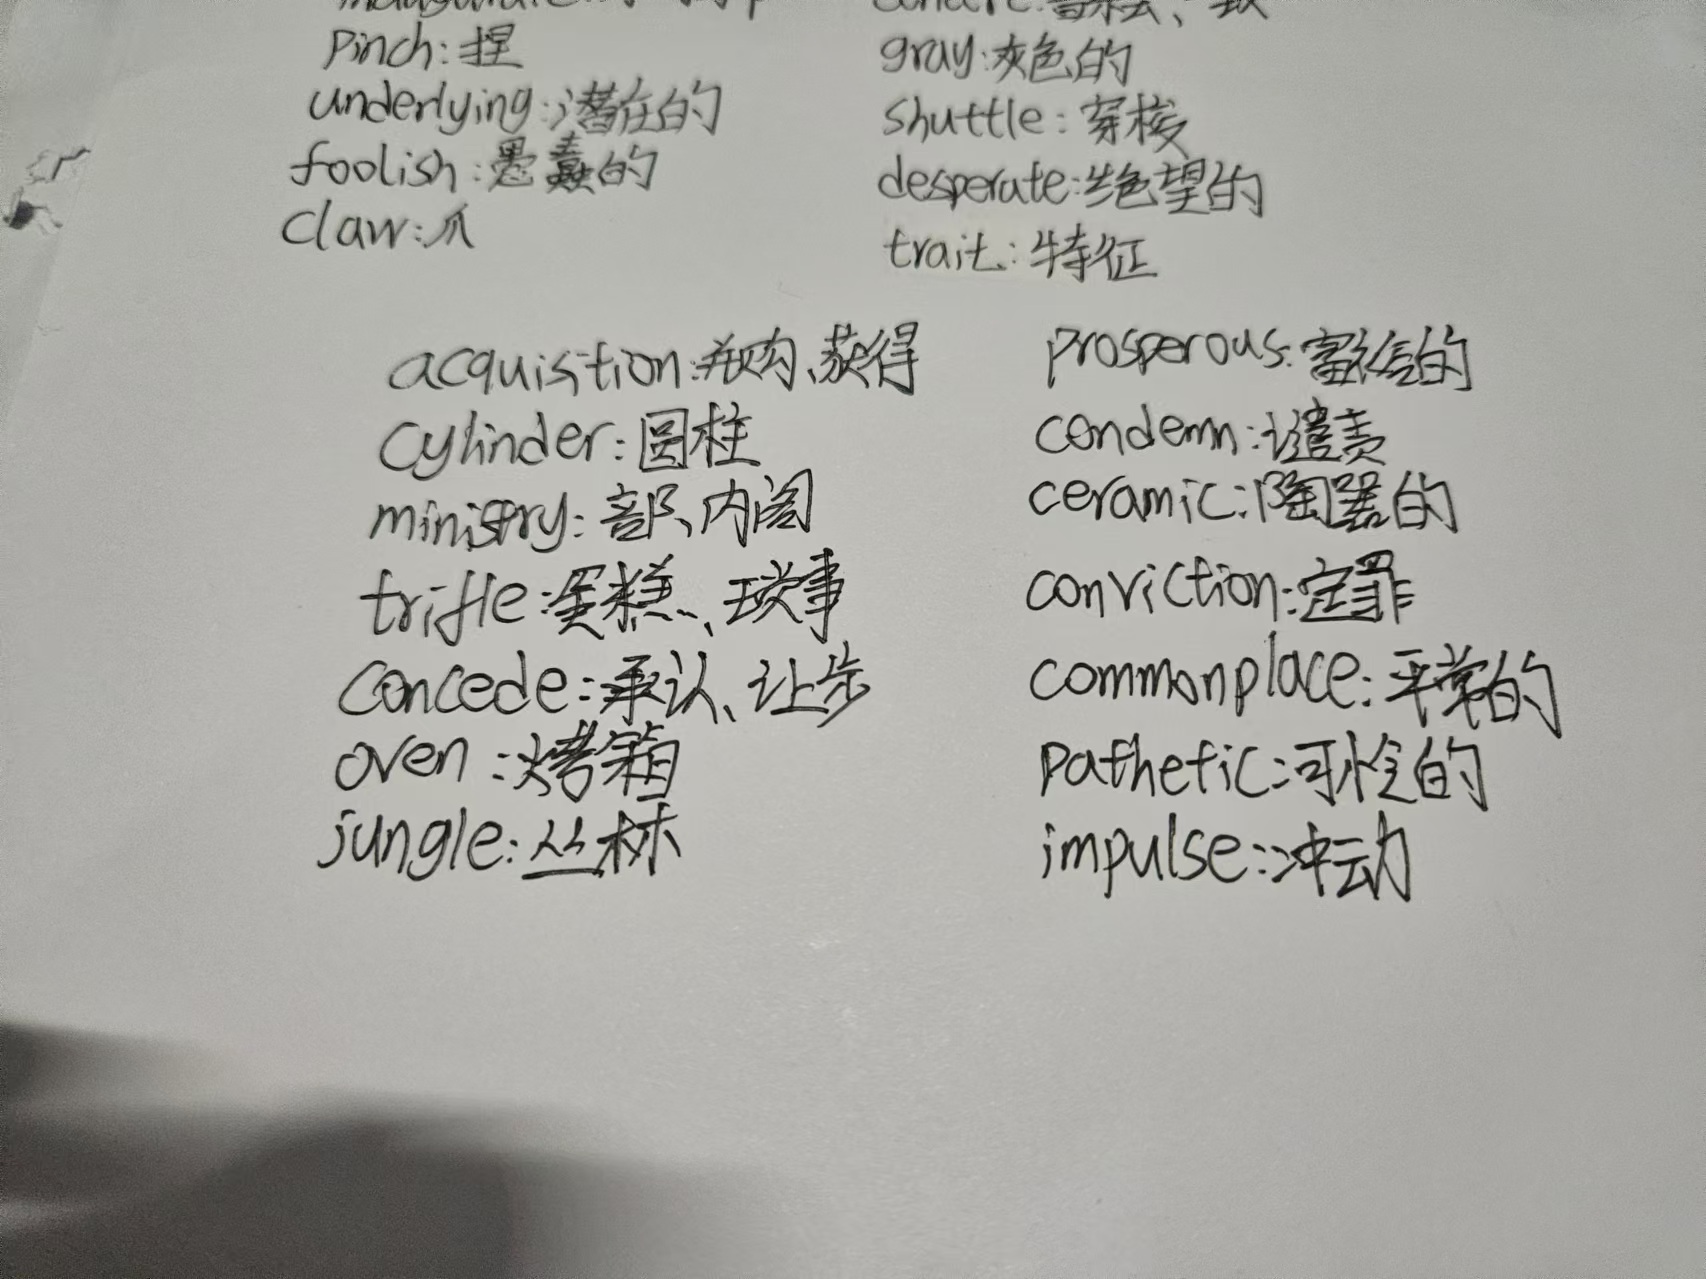 pinch:捏
underlying:潜在的
foolish:愚蠢的
claw:爪
gray:灰色的
shuttle:穿梭
desperate:绝望的
trait:特征
acquisition:并购、获得
cylinder:圆柱
ministry:部、内阁
trifle:蛋糕、琐事
concede:承认、让步
oven:烤箱
jungle:丛林
prosperous:富裕的
condemn:谴责
ceramic:陶器的
conviction:定罪
commonplace:平常的
pathetic:可怜的
impulse:冲动